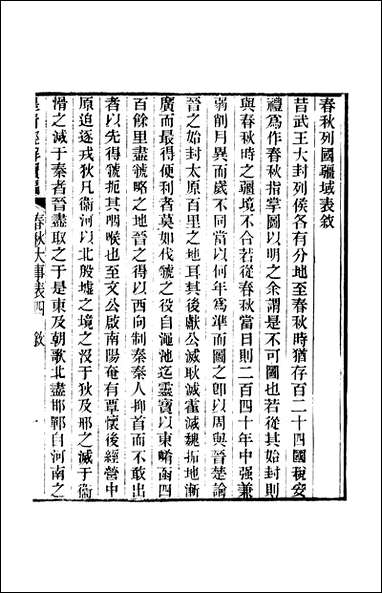 春秋列國疆域表敘
昔武王大封列侯各有分地至春秋時猶存百二十四國稅安
禮爲作春秋指掌圖以明之余謂是不可圖也若從其始封則
與春秋時之疆境不合若從春秋當日則二百四十年中强兼
弱削月異而歲不同當以何年爲準而圖之卽以周與晉楚論
晉之始封太原百里之地耳其後獻公滅耿滅霍滅魏拓地漸
廣而最得便利者莫如伐虢之役自澠池迄靈寶以東崤函四
百餘里盡虢略之地晉之得以西向制秦秦人抑首而不敢出
者以先得虢扼其咽喉也至文公啟南陽奄有覃懷後經營中
原迫逐戎狄凡衞河以北殷墟之境之沒于狄及邢之滅于衞
滑之滅于秦者晉盡取之于是東及朝歌北盡邯鄲自河南之
春秋大事表四 敘